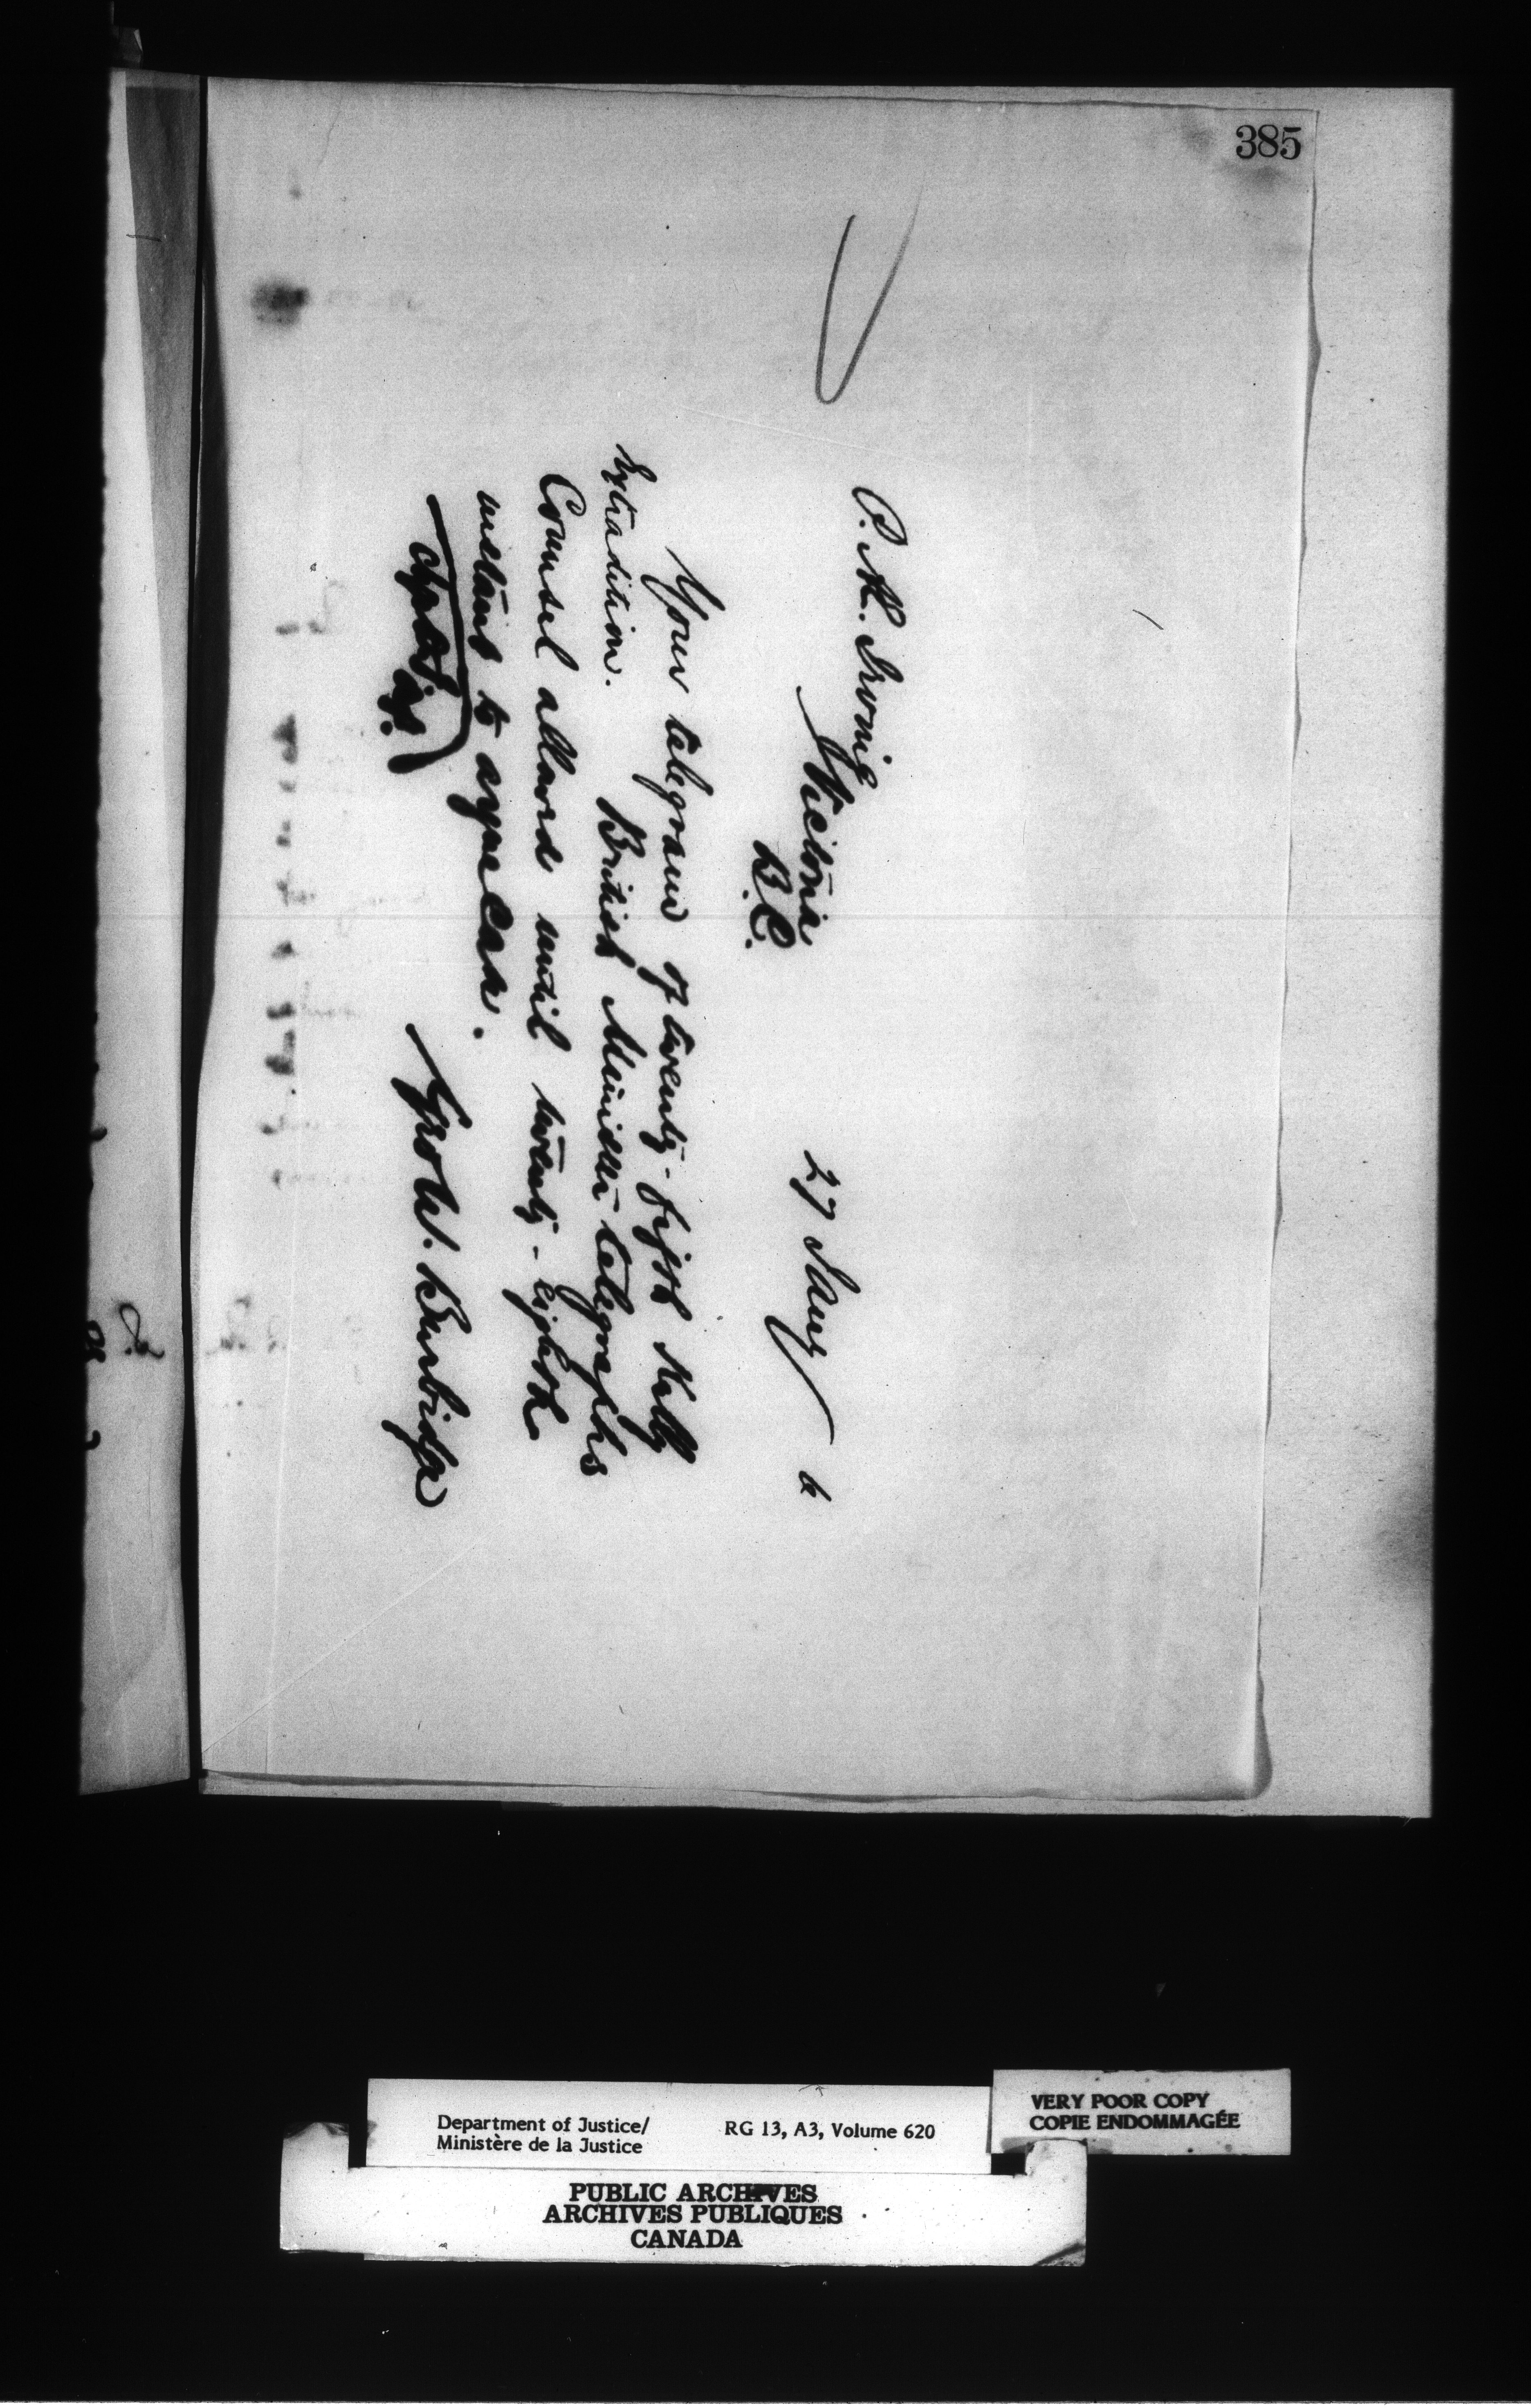 385
27 Jany 6
P. Æ. Irving
Victoria
B.C.
Your telegram of twenty-fifth Kelly
Extradition. British Minister telegraphs
Counsel allowed until twenty-eighth
instant to argue case.
Geo W. Burbidge
Department of Justice/
Ministère de la Justice
RG 13, A3, Volume 620
VERY POOR COPY
COPIE ENDOMMAGÉE
PUBLIC ARCHIVES
ARCHIVES PUBLIQUES
CANADA